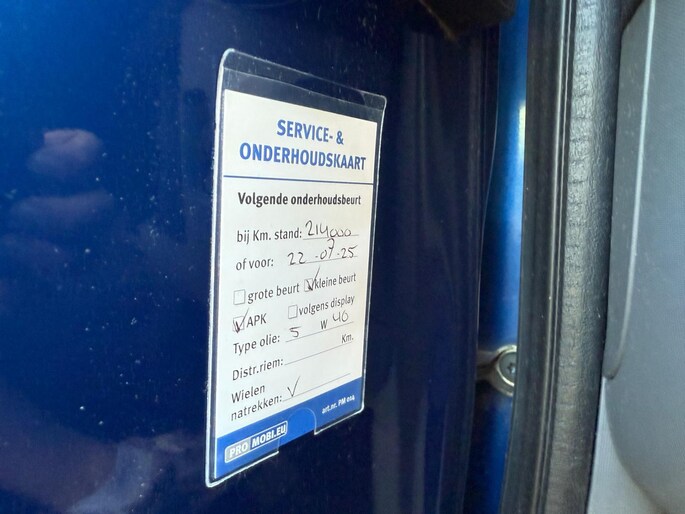 SERVICE- &
ONDERHOUDSKAART
Volgende onderhoudsbeurt
bij Km. stand: 214000
of voor: 22-07-25
grote beurt kleine beurt
APK volgens display
Type olie: 5 W 40
Distr.riem: Km.
Wielen
natrekken:
art.nr. PM 014
PRO MOBI.EU